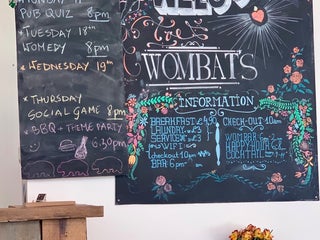 PUB QUIZ 8pm
*TUESDAY 18th
WOMEDY 8pm
*WEDNESDAY 19th
*THURSDAY
SOCIAL GAME 8pm
*BBQ + THEME PARTY
6:30pm
the
WOMBATS
INFORMATION
BREAKFAST
LAUNDRY
SERVICE
WIFI
checkout 10pm
BAR 6pm
CHECK-OUT 10am
WOMBAR
HAPPY HOUR
COCKTAIL